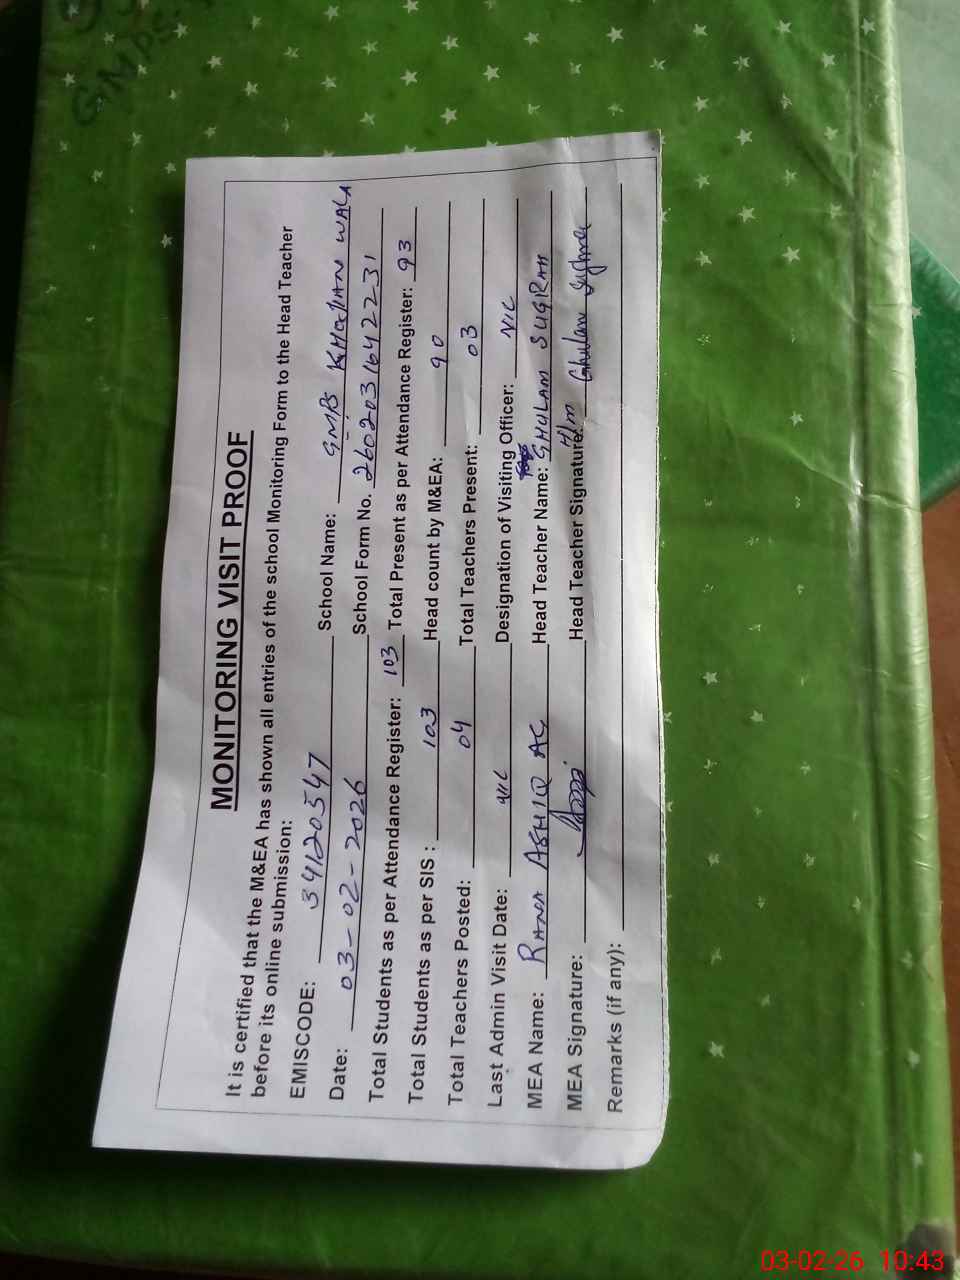 GMPS
MONITORING VISIT PROOF
It is certified that the M&EA has shown all entries of the school Monitoring Form to the Head Teacher
before its online submission:
EMISCODE: 34120547 School Name: GMPS WALA
Date: 03-02-2026 School Form No. 2602031642231
Total Students as per Attendance Register: 103 Total Present as per Attendance Register: 93
Total Students as per SIS : 103 Head count by M&EA: 90
Total Teachers Posted: 04 Total Teachers Present: 03
Last Admin Visit Date: NIL Designation of Visiting Officer: NIL
MEA Name: RANA ASHIQ Head Teacher Name: GHULAM SUGRAH
MEA Signature: Head Teacher Signature: H/M Ghulam Sughra
Remarks (if any):
03-02-26 10:43